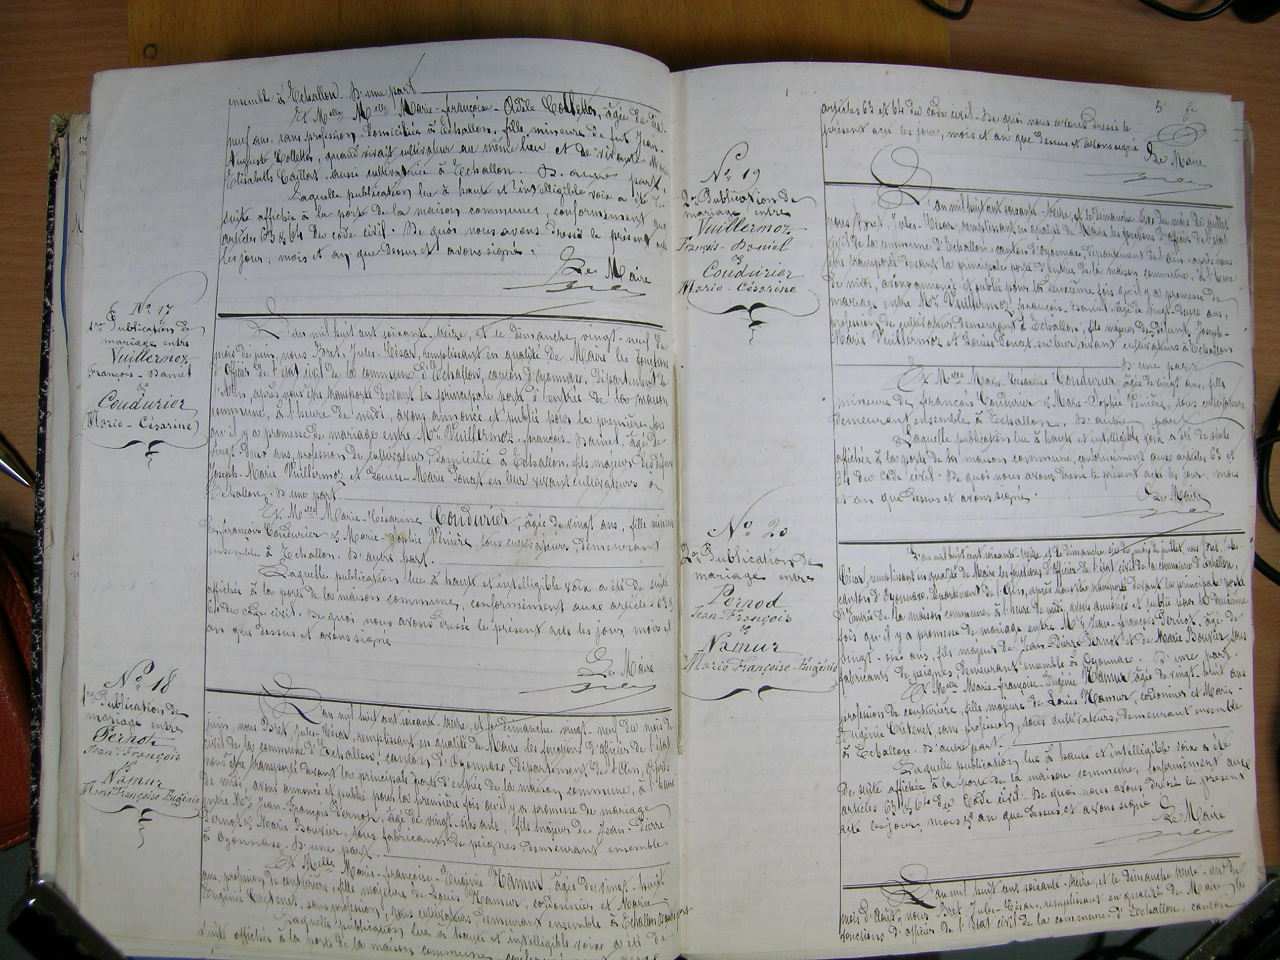 ensemble à Echallon. D'une part
Et Melle Marie-françoise-Adèle Colletta, âgée de dix-
neuf ans, sans profession, domiciliée à Echallon, fille mineure de feu Jean-
Auguste Colletta, quand vivait cultivateur au même lieu et de vivante Marie
Elisabeth Caillat, aussi cultivatrice à Echallon. D'autre part,
Laquelle publication lue à haute et intelligible voix a été de
suite affichée à la porte de la maison commune, conformément aux
articles 63 & 64 du code civil. De quoi nous avons dressé le présent acte
les jour, mois et an que dessus et avons signé.
Le Maire
Nº 17
1re Publication de
mariage entre
Vuillermoz
François-Daniel
&
Coudurier
Marie-Césarine
L'an mil huit cent soixante-seize, et le dimanche vingt-neuf du
mois de juin, nous Bret, Jules-César, remplissant en qualité de Maire les fonctions
d'officier de l'état civil de la commune d'Echallon, canton d'Oyonnax, Département de
l'Ain, après nous être transporté devant la principale porte d'entrée de la maison
commune, à l'heure de midi, avons annoncé et publié pour la première fois
qu'il y a promesse de mariage entre Mr Vuillermoz françois-Daniel, âgé de
vingt-deux ans, profession de cultivateur, domicilié à Echallon, fils majeur de défunt
Joseph-Marie Vuillermoz et Louise-Marie Tonat en leur vivant cultivateurs à
Echallon, D'une part
Et Melle Marie-Césarine Coudurier, âgée de vingt ans, fille mineure
de françois Coudurier et Marie-Sophie Penière, tous cultivateurs, demeurant
ensemble à Echallon. D'autre part.
Laquelle publication lue à haute et intelligible voix a été de suite
affichée à la porte de la maison commune, conformément aux articles 63 &
64 du code civil. De quoi nous avons dressé le présent acte les jour, mois et
an que dessus et avons signé
Le Maire
Nº 18
1re Publication de
mariage entre
Pernot
Jean-François
&
Namur
Marie Françoise Eugénie
L'an mil huit cent soixante-seize, et le dimanche vingt-neuf du mois de
juin, nous Bret, Jules-César, remplissant en qualité de Maire les fonctions d'officier de l'état
civil de la commune d'Echallon, canton d'Oyonnax, Département de l'Ain, après
nous être transporté devant la principale porte d'entrée de la maison commune, à l'heure
de midi, avons annoncé et publié pour la première fois qu'il y a promesse de mariage
entre Mr Jean-François Pernot, âgé de vingt-six ans, fils majeur de Jean-Pierre
Pernot & Marie Bouvier, tous fabricants de peignes demeurant ensemble
à Oyonnax. D'une part.
Et Melle Marie-françoise-Eugénie Namur, âgée de vingt-huit
ans, profession de couturière, fille majeure de Louis Namur, cordonnier et Marie
Eugénie sans profession, tous cultivateurs demeurant ensemble à Echallon d'autre part
Laquelle publication lue à haute et intelligible voix a été de
suite affichée à la porte de la maison commune
5
articles 63 et 64 du code civil. De quoi nous avons dressé le
présent acte les jour, mois et an que dessus et avons signé
Le Maire
Nº 19
2e Publication de
mariage entre
Vuillermoz
François-Daniel
&
Coudurier
Marie-Césarine
L'an mil huit cent soixante-seize, et le dimanche six du mois de juillet
nous Bret, Jules-César, remplissant en qualité de Maire les fonctions d'officier de l'état
civil de la commune d'Echallon, canton d'Oyonnax, département de l'Ain, après nous
être transporté devant la principale porte d'entrée de la maison commune, à l'heure
de midi, avons annoncé et publié pour la deuxième fois qu'il y a promesse de
mariage entre Mr Vuillermoz, françois-Daniel, âgé de vingt-deux ans,
profession de cultivateur, demeurant à Echallon, fils majeur de défunt Joseph-
Marie Vuillermoz et Louise Tonat en leur vivant cultivateurs à Echallon
D'une part
Et Melle Marie-Césarine Coudurier, âgée de vingt ans, fille
mineure de françois Coudurier & Marie-Sophie Penière, tous cultivateurs
demeurant ensemble à Echallon. D'autre part
Laquelle publication lue à haute et intelligible voix a été de suite
affichée à la porte de la maison commune, conformément aux articles 63 et
64 du code civil. De quoi nous avons dressé le présent acte les jour, mois
et an que dessus et avons signé.
Le Maire
Nº 20
2e Publication de
mariage entre
Pernod
Jean-François
&
Namur
Marie Françoise-Eugénie
L'an mil huit cent soixante-seize et le dimanche six du mois de juillet nous Bret Jules
César, remplissant en qualité de Maire les fonctions d'officier de l'état civil de la commune d'Echallon,
canton d'Oyonnax, Département de l'Ain, après nous être transporté devant la principale porte
d'Entrée de la maison commune, à l'heure de midi, avons annoncé et publié pour la deuxième
fois qu'il y a promesse de mariage entre Mr Jean-françois Pernot, âgé de
vingt-six ans, fils majeur de Jean-Pierre Pernot et de Marie Bouvier, tous
fabricants de peignes, demeurant ensemble à Oyonnax. D'une part.
Et Melle Marie-françoise-Eugénie Namur, âgée de vingt-huit ans
profession de couturière, fille majeure de Louis Namur, cordonnier et Marie-
Eugénie sans profession, tous cultivateurs, demeurant ensemble
à Echallon. D'autre part.
Laquelle publication lue à haute et intelligible voix a été
de suite affichée à la porte de la maison commune, conformément aux
articles 63 & 64 du Code civil. De quoi nous avons dressé le présent
acte les jour, mois et an que dessus et avons signé
Le Maire
L'an mil huit cent soixante-seize, et le dimanche
mois d'Août, nous Bret Jules-César, remplissant en qualité de Maire les
fonctions d'officier de l'Etat civil de la commune d'Echallon, canton